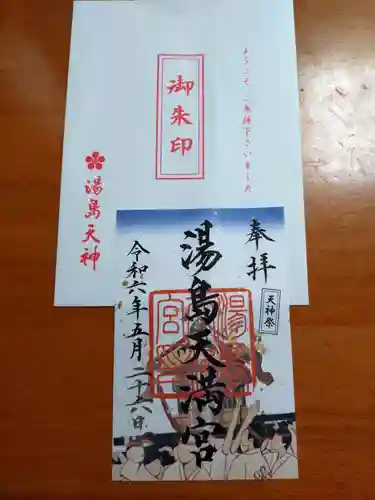 ようこそ、ご参拝下さいました
御朱印
湯島天神
奉拝
天神祭
湯島天満宮
令和六年五月二十六日